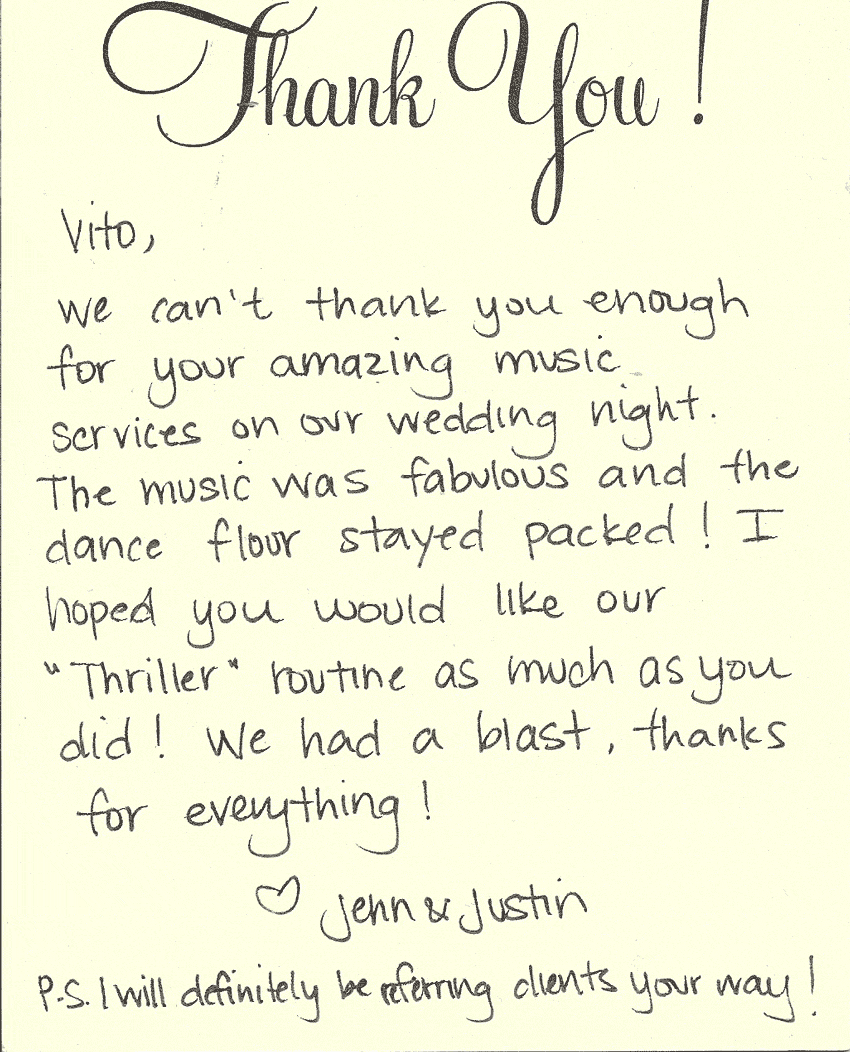 Thank You!
Vito,
we can't thank you enough
for your amazing music
services on our wedding night.
The music was fabulous and the
dance floor stayed packed! I
hoped you would like our
"Thriller" routine as much as you
did! We had a blast, thanks
for everything!
♡ Jenn & Justin
P.S. I will definitely be referring clients your way!